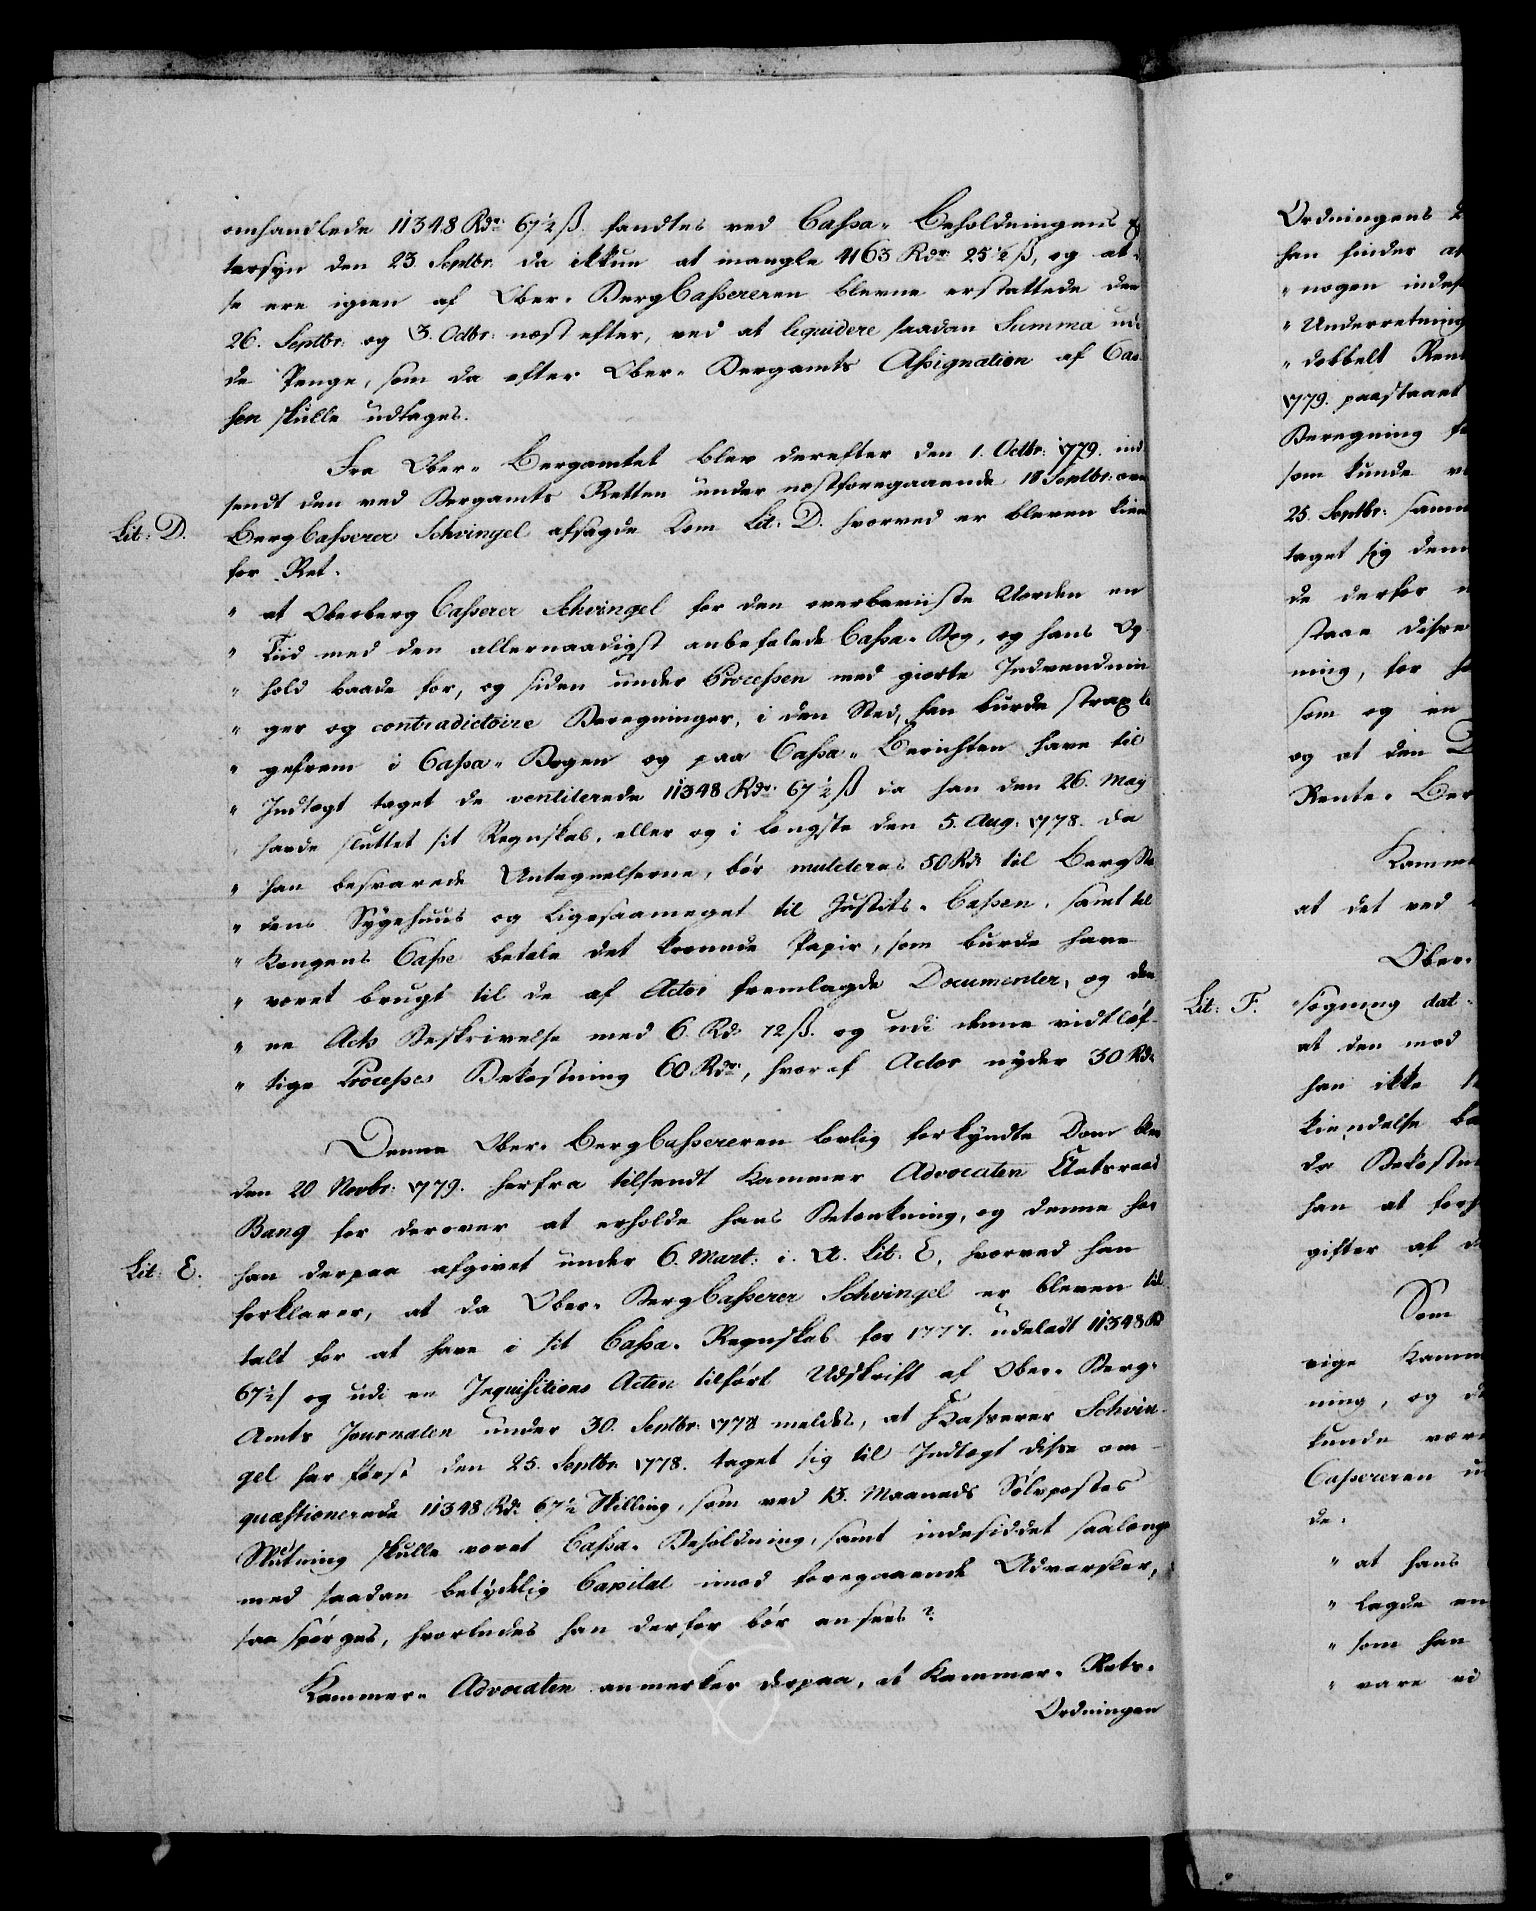 omhandlede 11348 Rdr 67½ ß. fandtes ved Cassa-Beholdningens Ef
tersyn den 23. Septbr: da ikkun at mangle 4163 Rdr 25½ ß, og at di
se ere igien af Ober-BergCassereren blevne erstattede den
26. Septbr: og 3. Octbr: næst efter, ved at liquidere saadan Summa udi
de Penge, som da efter Ober-Bergamts Assignation af Cas
sen skulle udtages.
Fra Ober-Bergamtet blev derefter den 1. Octbr: 1779. ind
sendt den ved Bergamts Retten under næstforegaaende 18 Septbr: over
Lit: D.
BergCasserer Schvingel afsagde Dom Lit: D. hvorved er bleven kien
for Ret.
" at Oberberg Casserer Schvingel for den overbeviiste Uorden en
" Tiid med den allernaadigst anbefalede Cassa-Bog, og hans Op
" hold baade for, og siden under Processen med giorte Indvendnin
" ger og contradictoire Beregninger, i den Sted, han burde strax li
" gefrem i Cassa-Bogen og paa Cassa-Berichten have til
" Indtægt taget de ventilerede 11348 Rdr 67½ ß da han den 26. May
" havde sluttet sit Regnskab, eller og i længste den 5. Aug: 1778. da
" han besvarede Antegnelserne, bör mulcteres 50 Rdr til Bergstæ
" dens Sygehuus og ligesaameget til Justits-Cassen, samt til
" Kongens Casse betale det kronede Papir, som burde have
" været brugt til de af Actor fremlagde Documenter, og den
" ne Acts Beskrivelse med 6 Rdr 72 ß. og udi denne vidtlöf-
" tige Processes Bekostning 60 Rdr, hvoraf Actor nyder 30 Rdr
Denne Ober-BergCassereren lovlig forkyndte Dom blev
den 20 Novbr: 1779. herfra tilsendt Kammer Advocaten Etatsraad
Bang for derover at erholde hans Betænkning, og denne har
Lit: E.
han derpaa afgivet under 6. Mart: i. A. Lit: E, hvorved han
forklarer, at da Ober-BergCasserer Schvingel er bleven til
talt for at have i sit Cassa-Regnskab for 1777. udeladt 11348 Rd
67½ ß og udi en Inquisitions Acten tilfört Udskrift af Ober-Berg-
Amts Journalen under 30. Septbr: 1778 meldes, at Kasserer Schvin-
gel har först den 25. Septbr: 1778. taget sig til Indtægt disse om-
quæstionerede 11348 Rdr 67½ Skilling, som ved 13. Maaneds Sölvpostes
Slutning skulle været Cassa-Beholdning, samt indesiddet saalænge
med saadan betydelig Capital imod foregaaende Advarsler,
saa spörges, hvorledes han derfor bör ansees?
Kammer-Advocaten anmerker derpaa, at Kammer-Rets-
Ordningen
Ordningens
han finder at
" nogen indes
" Underretning
" dobbelt Rent
1779. paastaaet
Beregning
som kunde
25. Septbr: samm
taget sig
de derfor
staae disse
ning, for
som og en
og at den
Rente-Ber
Kamme
at det ved
Ober-
Lit: F.
sögning dat-
at den mod
han ikke
kiendelse
de Bekostn
han at
gifter af
Som
vige Kamm
ning, og
kunde være
Cassereren
de.
" at hans
" lagde en
" som han
" være vi